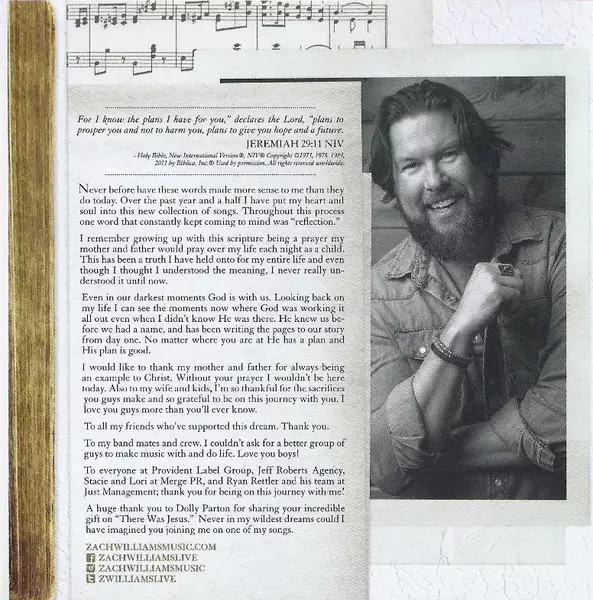 For I know the plans I have for you," declares the Lord, "plans to
prosper you and not to harm you, plans to give you hope and a future.
JEREMIAH 29:11 NIV
- Holy Bible, New International Version®, NIV® Copyright ©1973, 1978, 1984,
2011 by Biblica, Inc.® Used by permission. All rights reserved worldwide.
Never before have these words made more sense to me than they
do today. Over the past year and a half I have put my heart and
soul into this new collection of songs. Throughout this process
one word that constantly kept coming to mind was "reflection."
I remember growing up with this scripture being a prayer my
mother and father would pray over my life each night as a child.
This has been a truth I have held onto for my entire life and even
though I thought I understood the meaning, I never really un-
derstood it until now.
Even in our darkest moments God is with us. Looking back on
my life I can see the moments now where God was working it
all out even when I didn't know He was there. He knew us be-
fore we had a name, and has been writing the pages to our story
from day one. No matter where you are at He has a plan and
His plan is good.
I would like to thank my mother and father for always being
an example to Christ. Without your prayer I wouldn't be here
today. Also to my wife and kids, I'm so thankful for the sacrifices
you guys make and so grateful to be on this journey with you. I
love you guys more than you'll ever know.
To all my friends who've supported this dream. Thank you.
To my band mates and crew. I couldn't ask for a better group of
guys to make music with and do life. Love you boys!
To everyone at Provident Label Group, Jeff Roberts Agency,
Stacie and Lori at Merge PR, and Ryan Rettler and his team at
Just Management; thank you for being on this journey with me!
A huge thank you to Dolly Parton for sharing your incredible
gift on "There Was Jesus." Never in my wildest dreams could I
have imagined you joining me on one of my songs.
ZACHWILLIAMSMUSIC.COM
ZACHWILLIAMSLIVE
ZACHWILLIAMSMUSIC
ZWILLIAMSLIVE